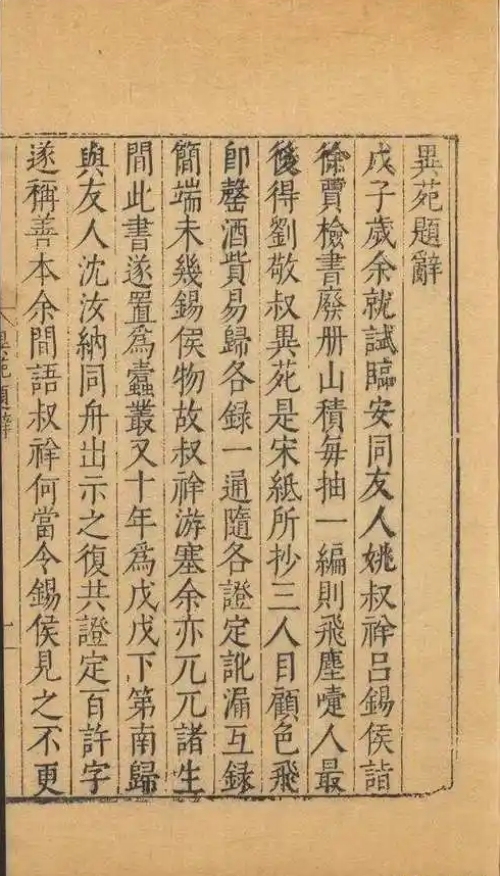 異苑題辭
戊子歲余就試臨安同友人姚叔祥呂錫侯詣
徐賈檢書廢册山積每抽一編則飛塵嚏人最
後得劉敬叔異苑是宋紙所抄三人目顧色飛
卽罄酒貲易歸各録一通隨各證定訛漏互録
簡端未幾錫侯物故叔祥游塞余亦兀兀諸生
間此書遂置爲蠹叢又十年爲戊戌下第南歸
與友人沈汝納同舟出示之復共證定百許字
遂稱善本余間語叔祥何當令錫侯見之不更
異苑題辭
一